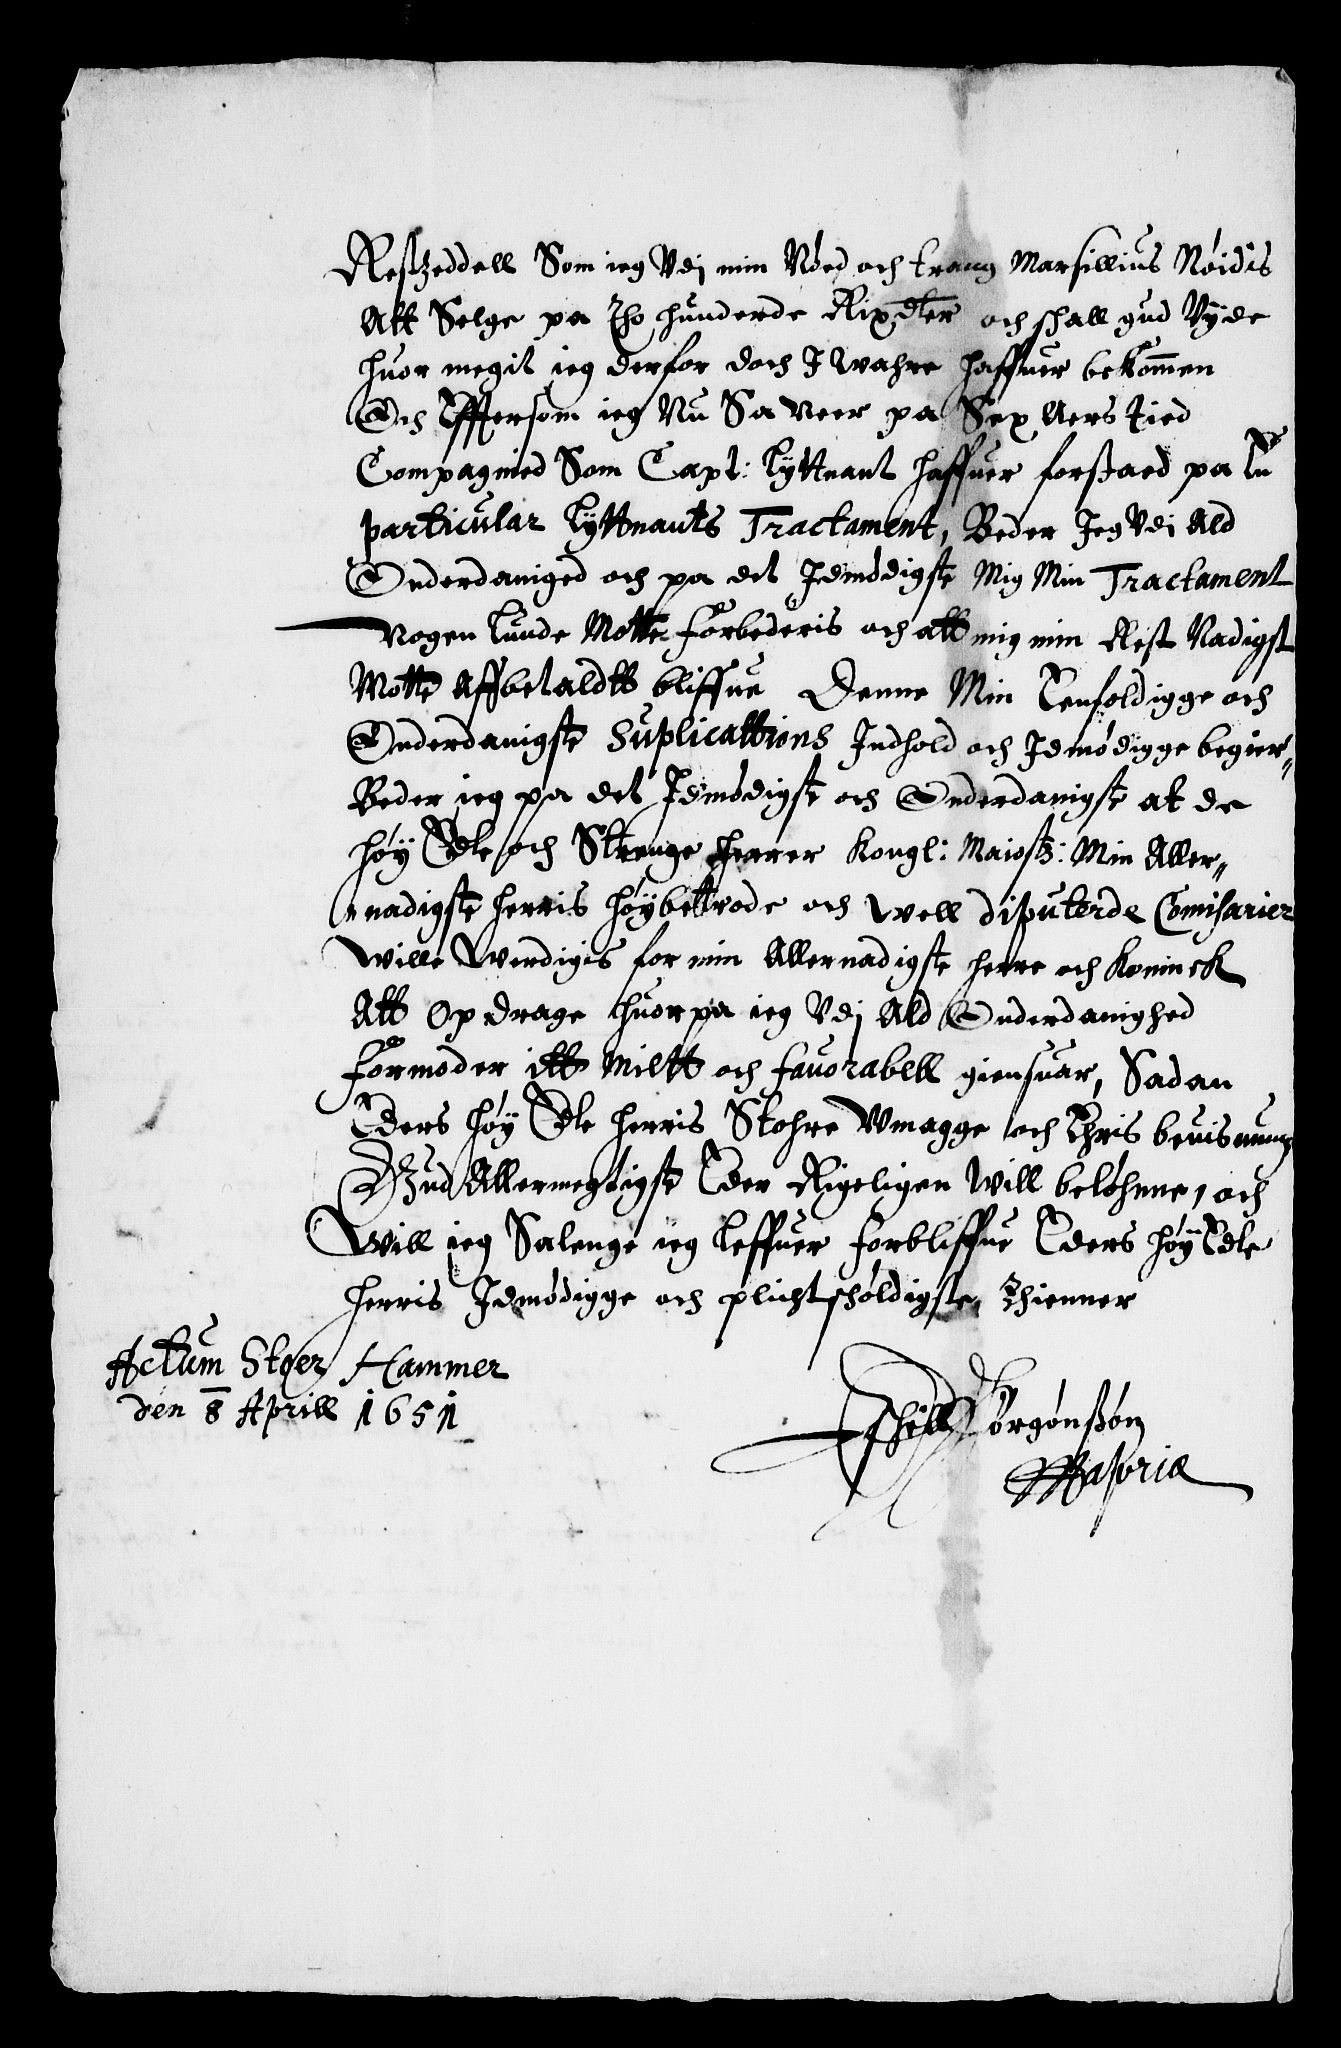 Restzeddell Som ieg Vdj min Nöed och trang Marsillius Nöidis
Att Selge pa Tho hunderde Rixdler och schall gud Vyde
huor megit ieg derfor doch J wahre haffuer bekommen
Och Effersom ieg Nu Sa Neer pa Sex Aers Tied
Compagnied Som Capt: Lyttnant haffuer forstaed pa En
particular Lyttnants Tractament, Beder Jeg Vdj Ald
Onderdaniged och pa det Jdmödigste Mig Min Tractament
Nogen Lunde Motte forbederis och att mig min Rest Nadigst
Motte Affbetaldtt bliffue Denne Min Eenfoldigge och
Onderdanigste Suplicattions Jndhold och Jdmödigge begier„
Beder ieg pa det Jdmödigste och Onderdanigste at de
höy Edle och Strenge herrer Kongl: Maiestz: Min Aller„
nadigste herris höybettrode och well diputerde Comisarier
Wille Werdigis for min Allernadigste herre och Koninck
Att Opdrage huorpa ieg Vdj Ald Onderdanighed
formoder itt miltt och favorabell giensuar, Sadan
Eders höy Edle herris Stohre Wmagge och Ehris beuisnung
Gud Allermegtigste Eder Rigeligen Will belöhnne, och
Will ieg Salenge ieg leffuer forbliffue Eders höy Edle
herris Jdmödigge och plichtschöldigste Thienner
Actum Stoer Hammer
den 8 Aprill 1651
Eschell Jörgönsön
Mapria